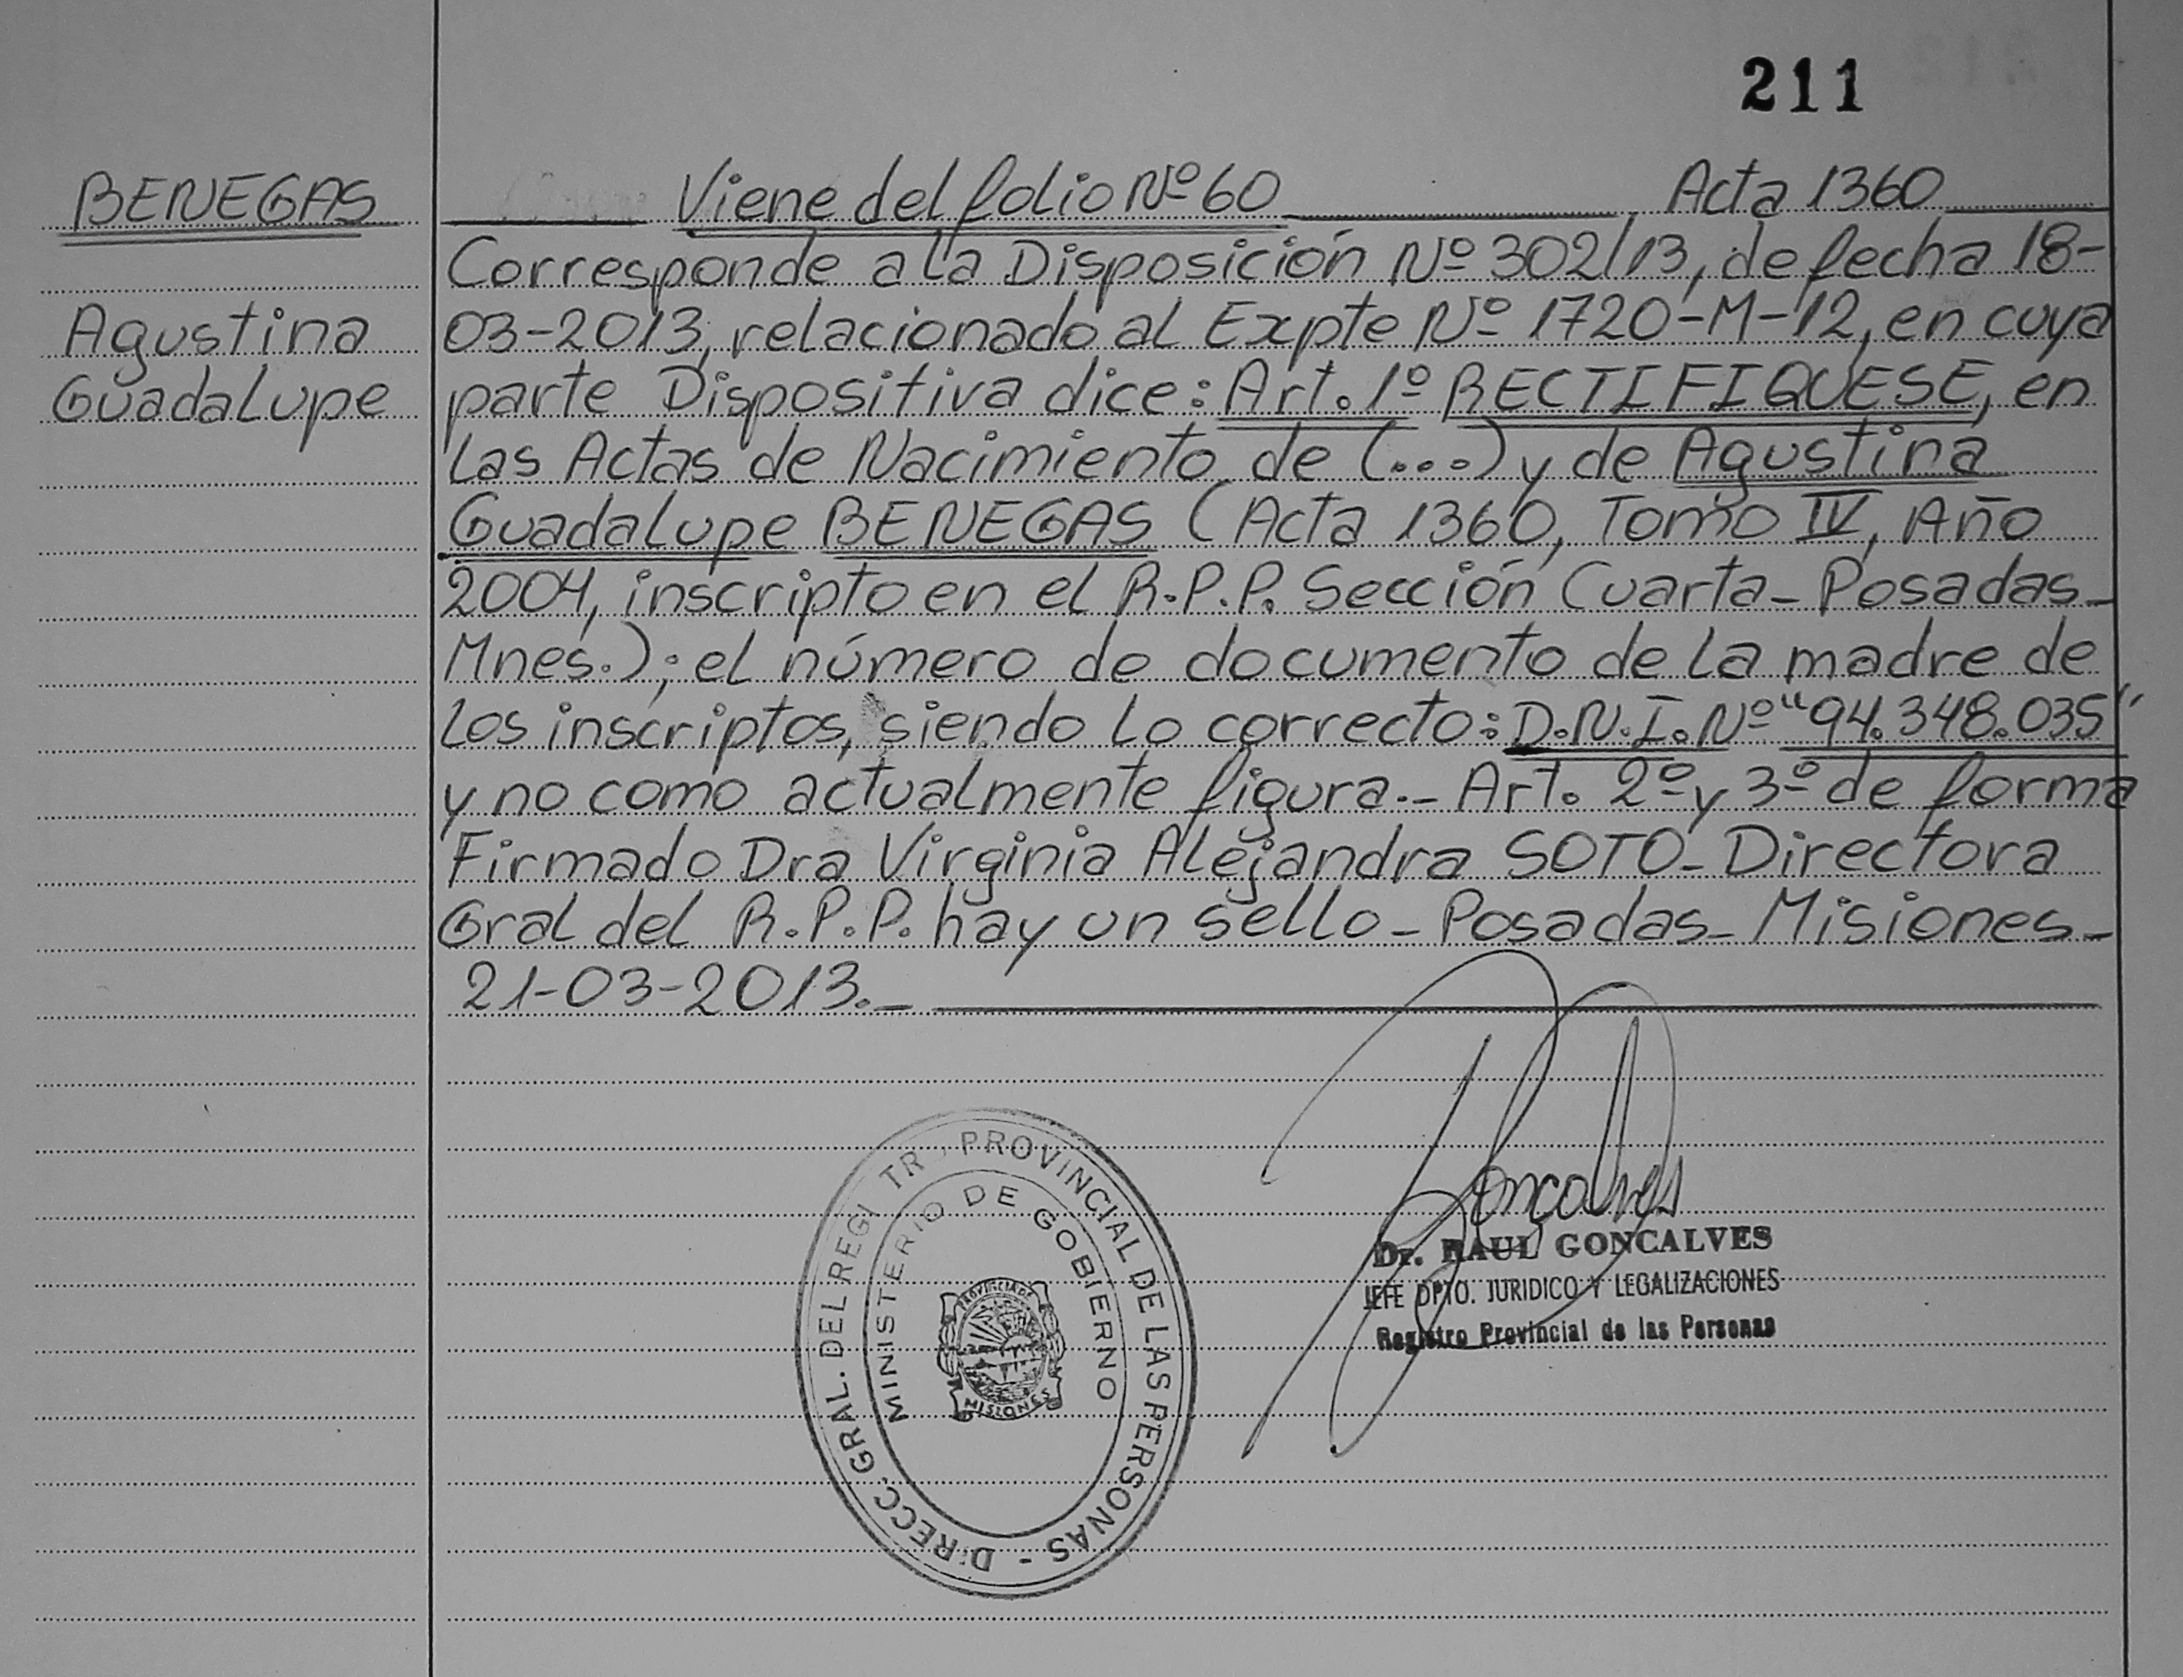 211
BENEGAS
Agustina
Guadalupe
Viene del folio Nº 60 Acta 1360
Corresponde a la Disposición Nº 302/13, de fecha 18-
03-2013, relacionado al Expte Nº 1720-M-12, en cuya
parte Dispositiva dice: Art. 1º RECTIFIQUESE, en
las Actas de Nacimiento de (...) y de Agustina
Guadalupe BENEGAS (Acta 1360, Tomo IV, Año
2004, inscripto en el R.P.P. Sección Cuarta - Posadas -
Mnes.); el número de documento de la madre de
los inscriptos, siendo lo correcto: D.N.I. Nº "94.348.035"
y no como actualmente figura.- Art. 2º y 3º de forma
Firmado Dra Virginia Alejandra SOTO - Directora
Gral del R.P.P. hay un sello - Posadas - Misiones -
21-03-2013.-
DIRECC. GRAL. DEL REGI TR PROVINCIAL DE LAS PERSONAS -
MINISTERIO DE GOBIERNO
PROVINCIA DE
MISIONES
Gonçalves
Dr. RAUL GONCALVES
JEFE DPTO. JURIDICO Y LEGALIZACIONES
Registro Provincial de las Personas